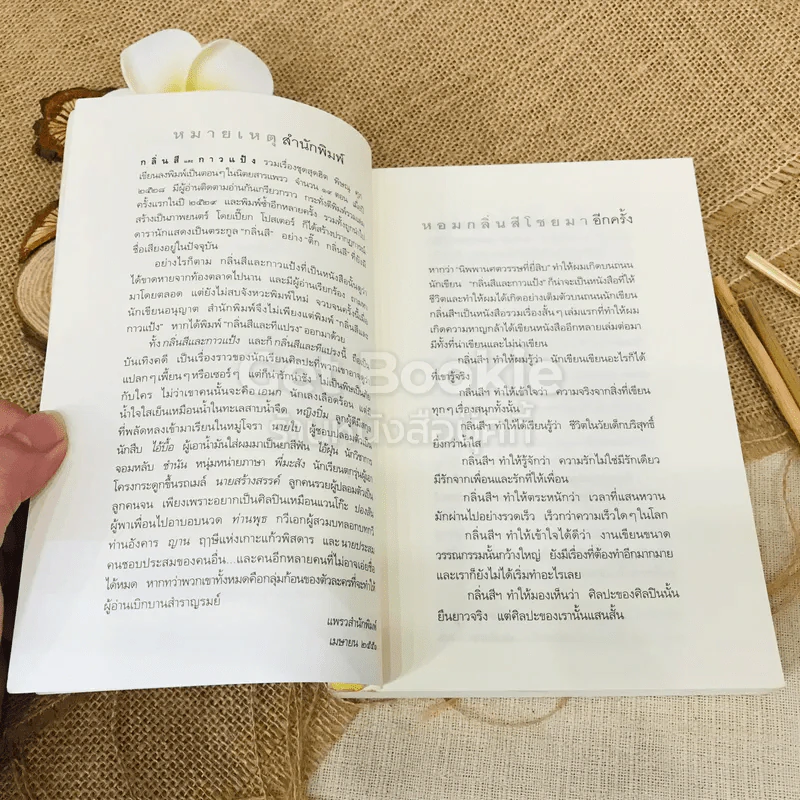 หมายเหตุ สำนักพิมพ์
กลิ่นสี และ กาวแป้ง รวมเรื่องชุดสุดฮิต พิษณุ ศุภ.
เขียนลงพิมพ์เป็นตอนๆ ในนิตยสารแพรว จำนวน ๑๙ ตอน เมื่อปี
๒๕๒๘ มีผู้อ่านติดตามอ่านกันเกรียวกราว กระทั่งตีพิมพ์รวมเล่ม
ครั้งแรกในปี ๒๕๒๙ และพิมพ์ซ้ำอีกหลายครั้ง รวมทั้งถูกนำไป
สร้างเป็นภาพยนตร์ โดยเปี๊ยก โปสเตอร์ ก็ได้สร้างปรากฏการณ์
ดารานักแสดงเป็นตระกูล "กลิ่นสี" อย่าง "ติ๊ก กลิ่นสี" ที่ยังมี
ชื่อเสียงอยู่ในปัจจุบัน
อย่างไรก็ตาม กลิ่นสีและกาวแป้งที่เป็นหนังสือนั้น
ได้ขาดหายจากท้องตลาดไปนาน และมีผู้อ่านเรียกร้อง ถามหา
มาโดยตลอด แต่ยังไม่สบจังหวะพิมพ์ใหม่ จวบจนครั้งนี้เมื่อ
นักเขียนอนุญาต สำนักพิมพ์จึงไม่เพียงแต่พิมพ์ "กลิ่นสีและ
กาวแป้ง" หากได้พิมพ์ "กลิ่นสีและทีแปรง" ออกมาด้วย
ทั้ง กลิ่นสีและกาวแป้ง และก็ กลิ่นสีและทีแปรงนี้ ถือเป็น
บันเทิงคดี เป็นเรื่องราวของนักเรียนศิลปะที่พวกเขาอาจจะ
แปลกๆ เพี้ยนๆ หรือเซอร์ๆ แต่ก็น่ารักน่าชัง ไม่เป็นพิษเป็นภัย
กับใคร ไม่ว่าเขาคนนั้นจะคือ เอนก นักเลงเลือดร้อน แต่มี
น้ำใจใสเย็นเหมือนน้ำในทะเลสาบน้ำจืด หญิงปิ๋ม ลูกผู้ดีมีสกุล
ที่พลัดหลงเข้ามาเรียนในหมู่โจรา นายใบ้ ผู้ชอบปลอมตัวเป็น
นักสืบ ไอ้บื้อ ผู้เอาน้ำมันใส่ผมมาเป็นยาสีฟัน ไอ้ฝุ่น นักวิชาการ
จอมหลับ ชำนัน หนุ่มหน่ายภาษา พี่มะสัง นักเรียนตกรุ่นผู้เอา
โครงกระดูกขึ้นรถเมล์ นายสร้างสรรค์ ลูกคนรวยผู้ปลอมตัวเป็น
ลูกคนจน เพียงเพราะอยากเป็นศิลปินเหมือนแวนโก๊ะ ปองศิลป์
ผู้พาเพื่อนไปอาบอบนวด ท่านพุธ กวีเอกผู้สวมบทลอกบทกวี
ท่านอังคาร ญาน ฤาษีแห่งเกาะแก้วพิสดาร และ นายประสม
คนชอบประสมของคนอื่น...และคนอีกหลายคนที่ไม่อาจเอ่ยชื่อ
ได้หมด หากทว่าพวกเขาทั้งหมดคือกลุ่มก้อนของตัวละครที่จะทำให้
ผู้อ่านเบิกบานสำราญรมย์
แพรวสำนักพิมพ์
เมษายน
หอมกลิ่นสีโชยมา อีกครั้ง
หากว่า "นิพพานคตวรรษที่ยี่สิบ" ทำให้ผมเกิดบนถนน
นักเขียน "กลิ่นสีและกาวแป้ง" ก็น่าจะเป็นหนังสือที่ให้
ชีวิตและทำให้ผมได้เกิดอย่างเต็มตัวบนถนนนักเขียน
กลิ่นสีฯ เป็นหนังสือรวมเรื่องสั้นๆ เล่มแรกที่ทำให้ผม
เกิดความหาญกล้าได้เขียนหนังสืออีกหลายเล่มต่อมา
มีทั้งที่น่าเขียนและไม่น่าเขียน
กลิ่นสีฯ ทำให้ผมรู้ว่า นักเขียนเขียนอะไรก็ได้
ที่เขารู้จริง
กลิ่นสีฯ ทำให้เข้าใจว่า ความจริงจากสิ่งที่เขียน
ทุกๆ เรื่องสนุกทั้งนั้น
กลิ่นสีฯ ทำให้ได้เรียนรู้ว่า ชีวิตในวัยเด็กบริสุทธิ์
ยิ่งกว่าน้ำใส
กลิ่นสีฯ ทำให้รู้จักว่า ความรักไม่ใช่มีรักเดียว
มีรักจากเพื่อนและรักที่ให้เพื่อน
กลิ่นสีฯ ทำให้ตระหนักว่า เวลาที่แสนหวาน
มักผ่านไปอย่างรวดเร็ว เร็วกว่าความเร็วใดๆ ในโลก
กลิ่นสีฯ ทำให้เข้าใจได้ดีว่า งานเขียนขนาด
วรรณกรรมนั้นกว้างใหญ่ ยังมีเรื่องที่ต้องทำอีกมากมาย
และเราก็ยังไม่ได้เริ่มทำอะไรเลย
กลิ่นสีฯ ทำให้มองเห็นว่า ศิลปะของศิลปินนั้น
ยืนยาวจริง แต่ศิลปะของเรานั้นแสนสั้น
Get Bookie
ร้านหนังสือบุ๊คกี้